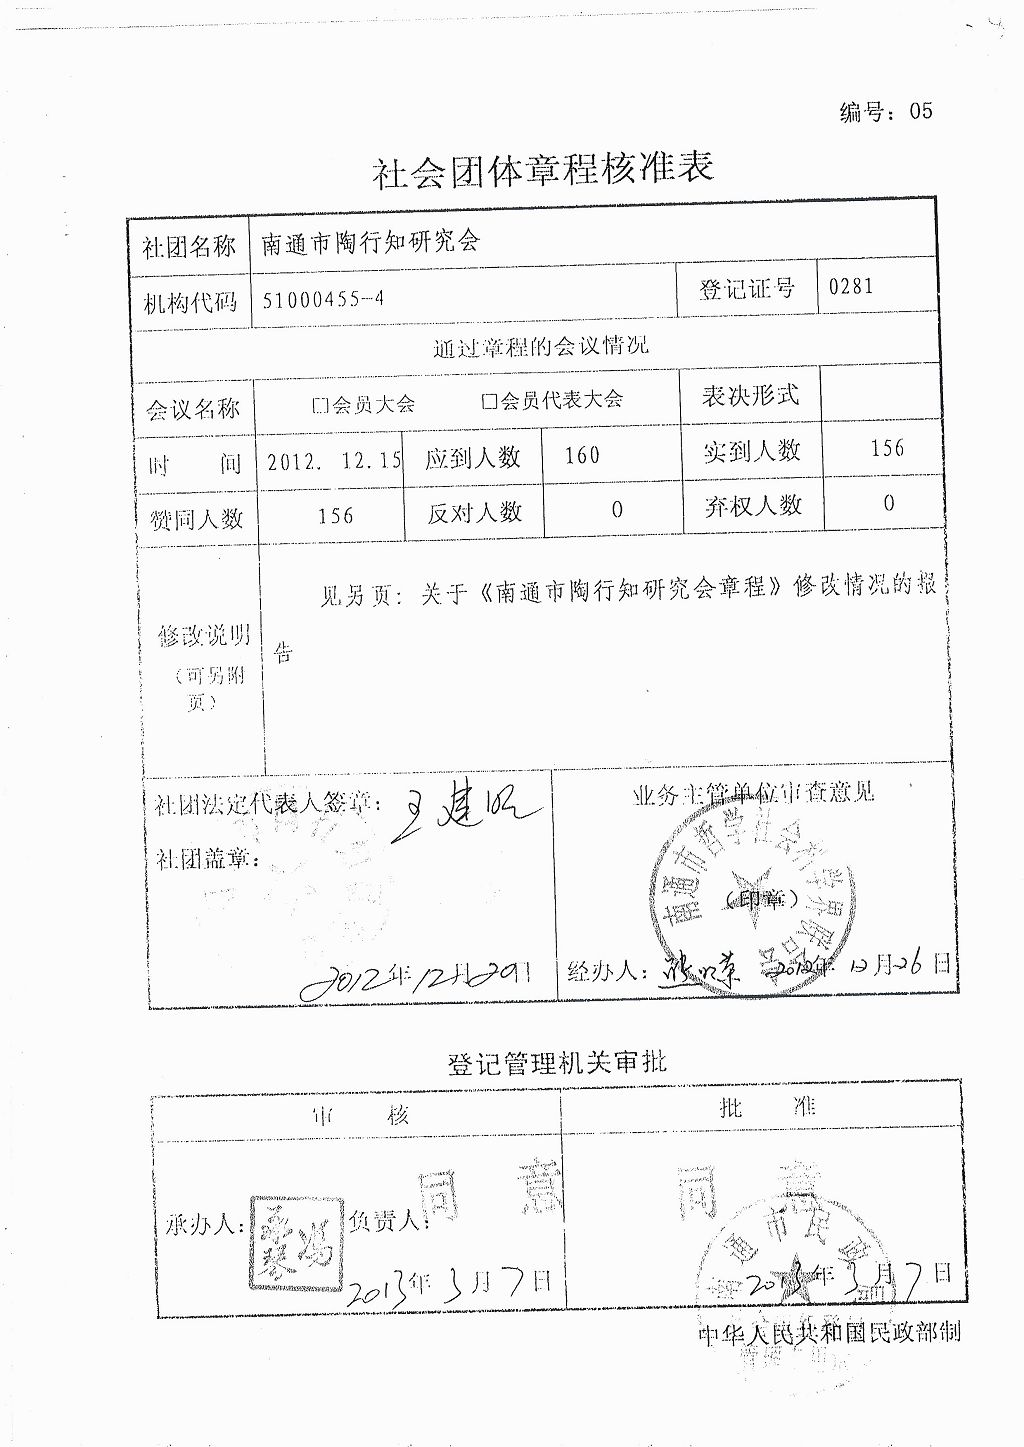 编号：05
社会团体章程核准表
社团名称 南通市陶行知研究会
机构代码 51000455-4 登记证号 0281
通过章程的会议情况
会议名称 □会员大会 □会员代表大会 表决形式
时 间 2012. 12.15 应到人数 160 实到人数 156
赞同人数 156 反对人数 0 弃权人数 0
见另页：关于《南通市陶行知研究会章程》修改情况的报
告
修改说明
（可另附
页）
社团法定代表人签章：
社团盖章：
2012年12月20日
业务主管单位审查意见
南通市哲学社会科学界联合会
（印章）
经办人： 2012年12月26日
登记管理机关审批
审 核 批 准
同 意 同 意
承办人： 负责人：
2013年3月7日
南通市民政局
2013年3月7日
中华人民共和国民政部制